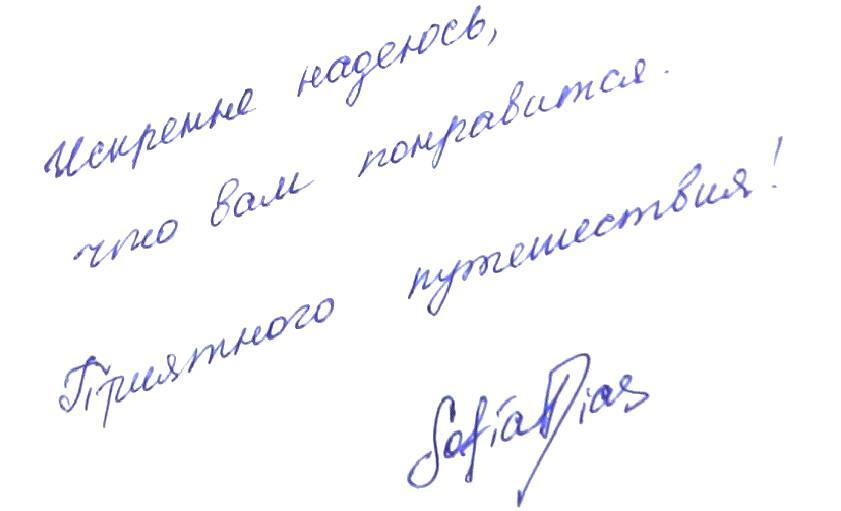 Искренне надеюсь,
что вам понравится.
Приятного путешествия!
Sofía Dias